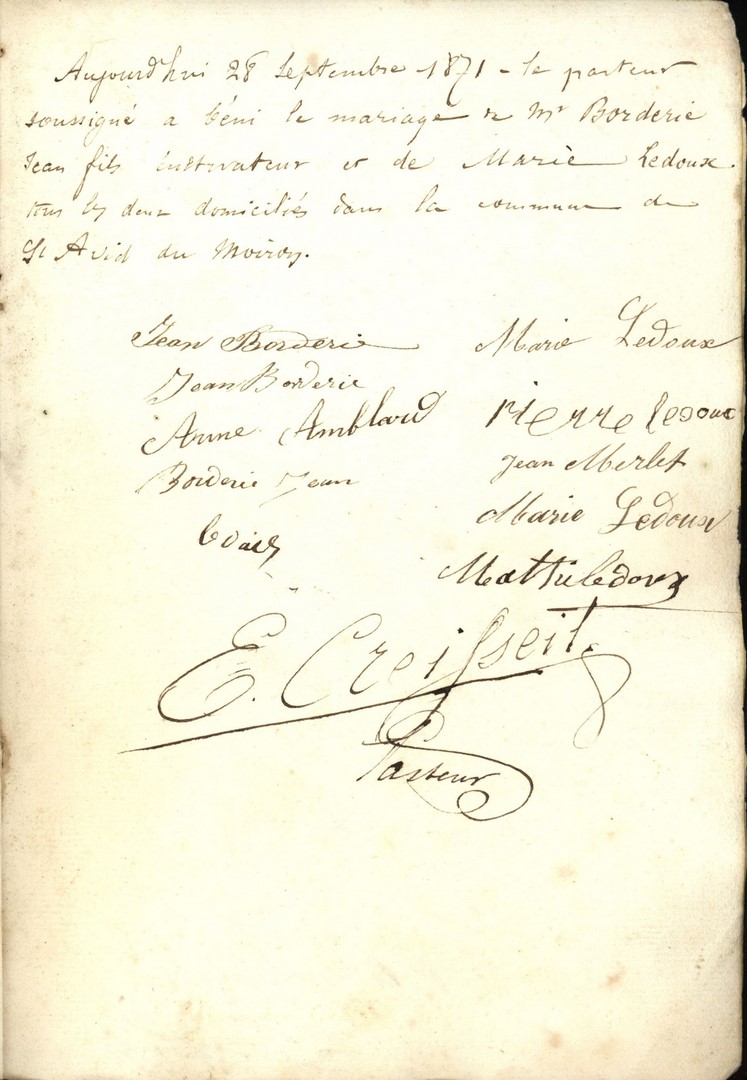 Aujourd'hui 28 Septembre 1871 - le pasteur
soussigné a béni le mariage de Mr Borderie
Jean fils cultivateur et de Marie Ledoux.
tous les deux domiciliés dans la commune de
St Avid du Moiron.
Jean Borderie
Marie Ledoux
Jean Borderie
Pierre Ledoux
Anne Amblard
Jean Merlet
Borderie Jean
Marie Ledoux
Mathieledoux
E. Creisseil.
Pasteur